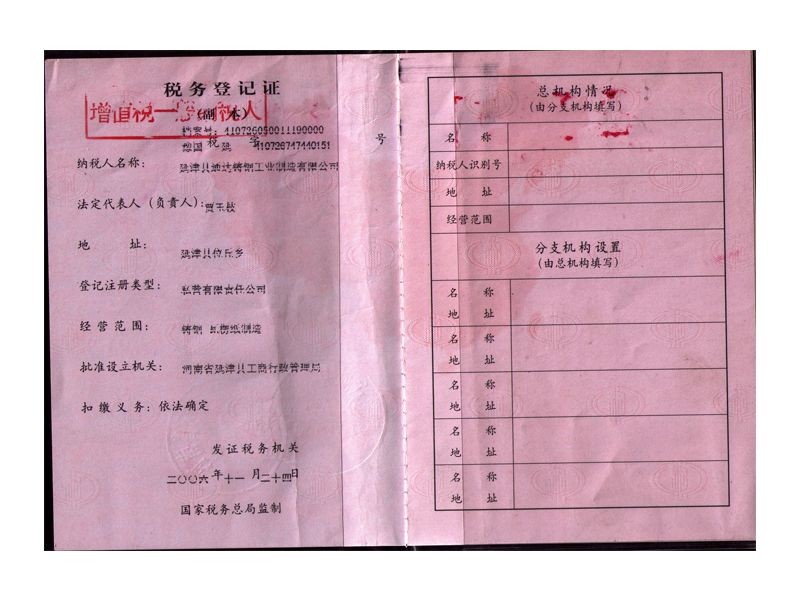 税务登记证
增值税一般纳税人
(副 本)
档案号: 410726050011190000
豫国 税 延 字 410726747440151 号
纳税人名称: 延津县通达铸钢工业制造有限公司
法定代表人(负责人): 贾玉枝
地 址: 延津县位丘乡
登记注册类型: 私营有限责任公司
经 营 范 围: 铸钢
批准设立机关: 河南省延津县工商行政管理局
扣 缴 义 务: 依法确定
发证税务机关
二〇〇六年十一月二十四日
国家税务总局监制
总机构情况
(由分支机构填写)
名 称
纳税人识别号
地 址
经营范围
分支机构设置
(由总机构填写)
名 称
地 址
名 称
地 址
名 称
地 址
名 称
地 址
名 称
地 址